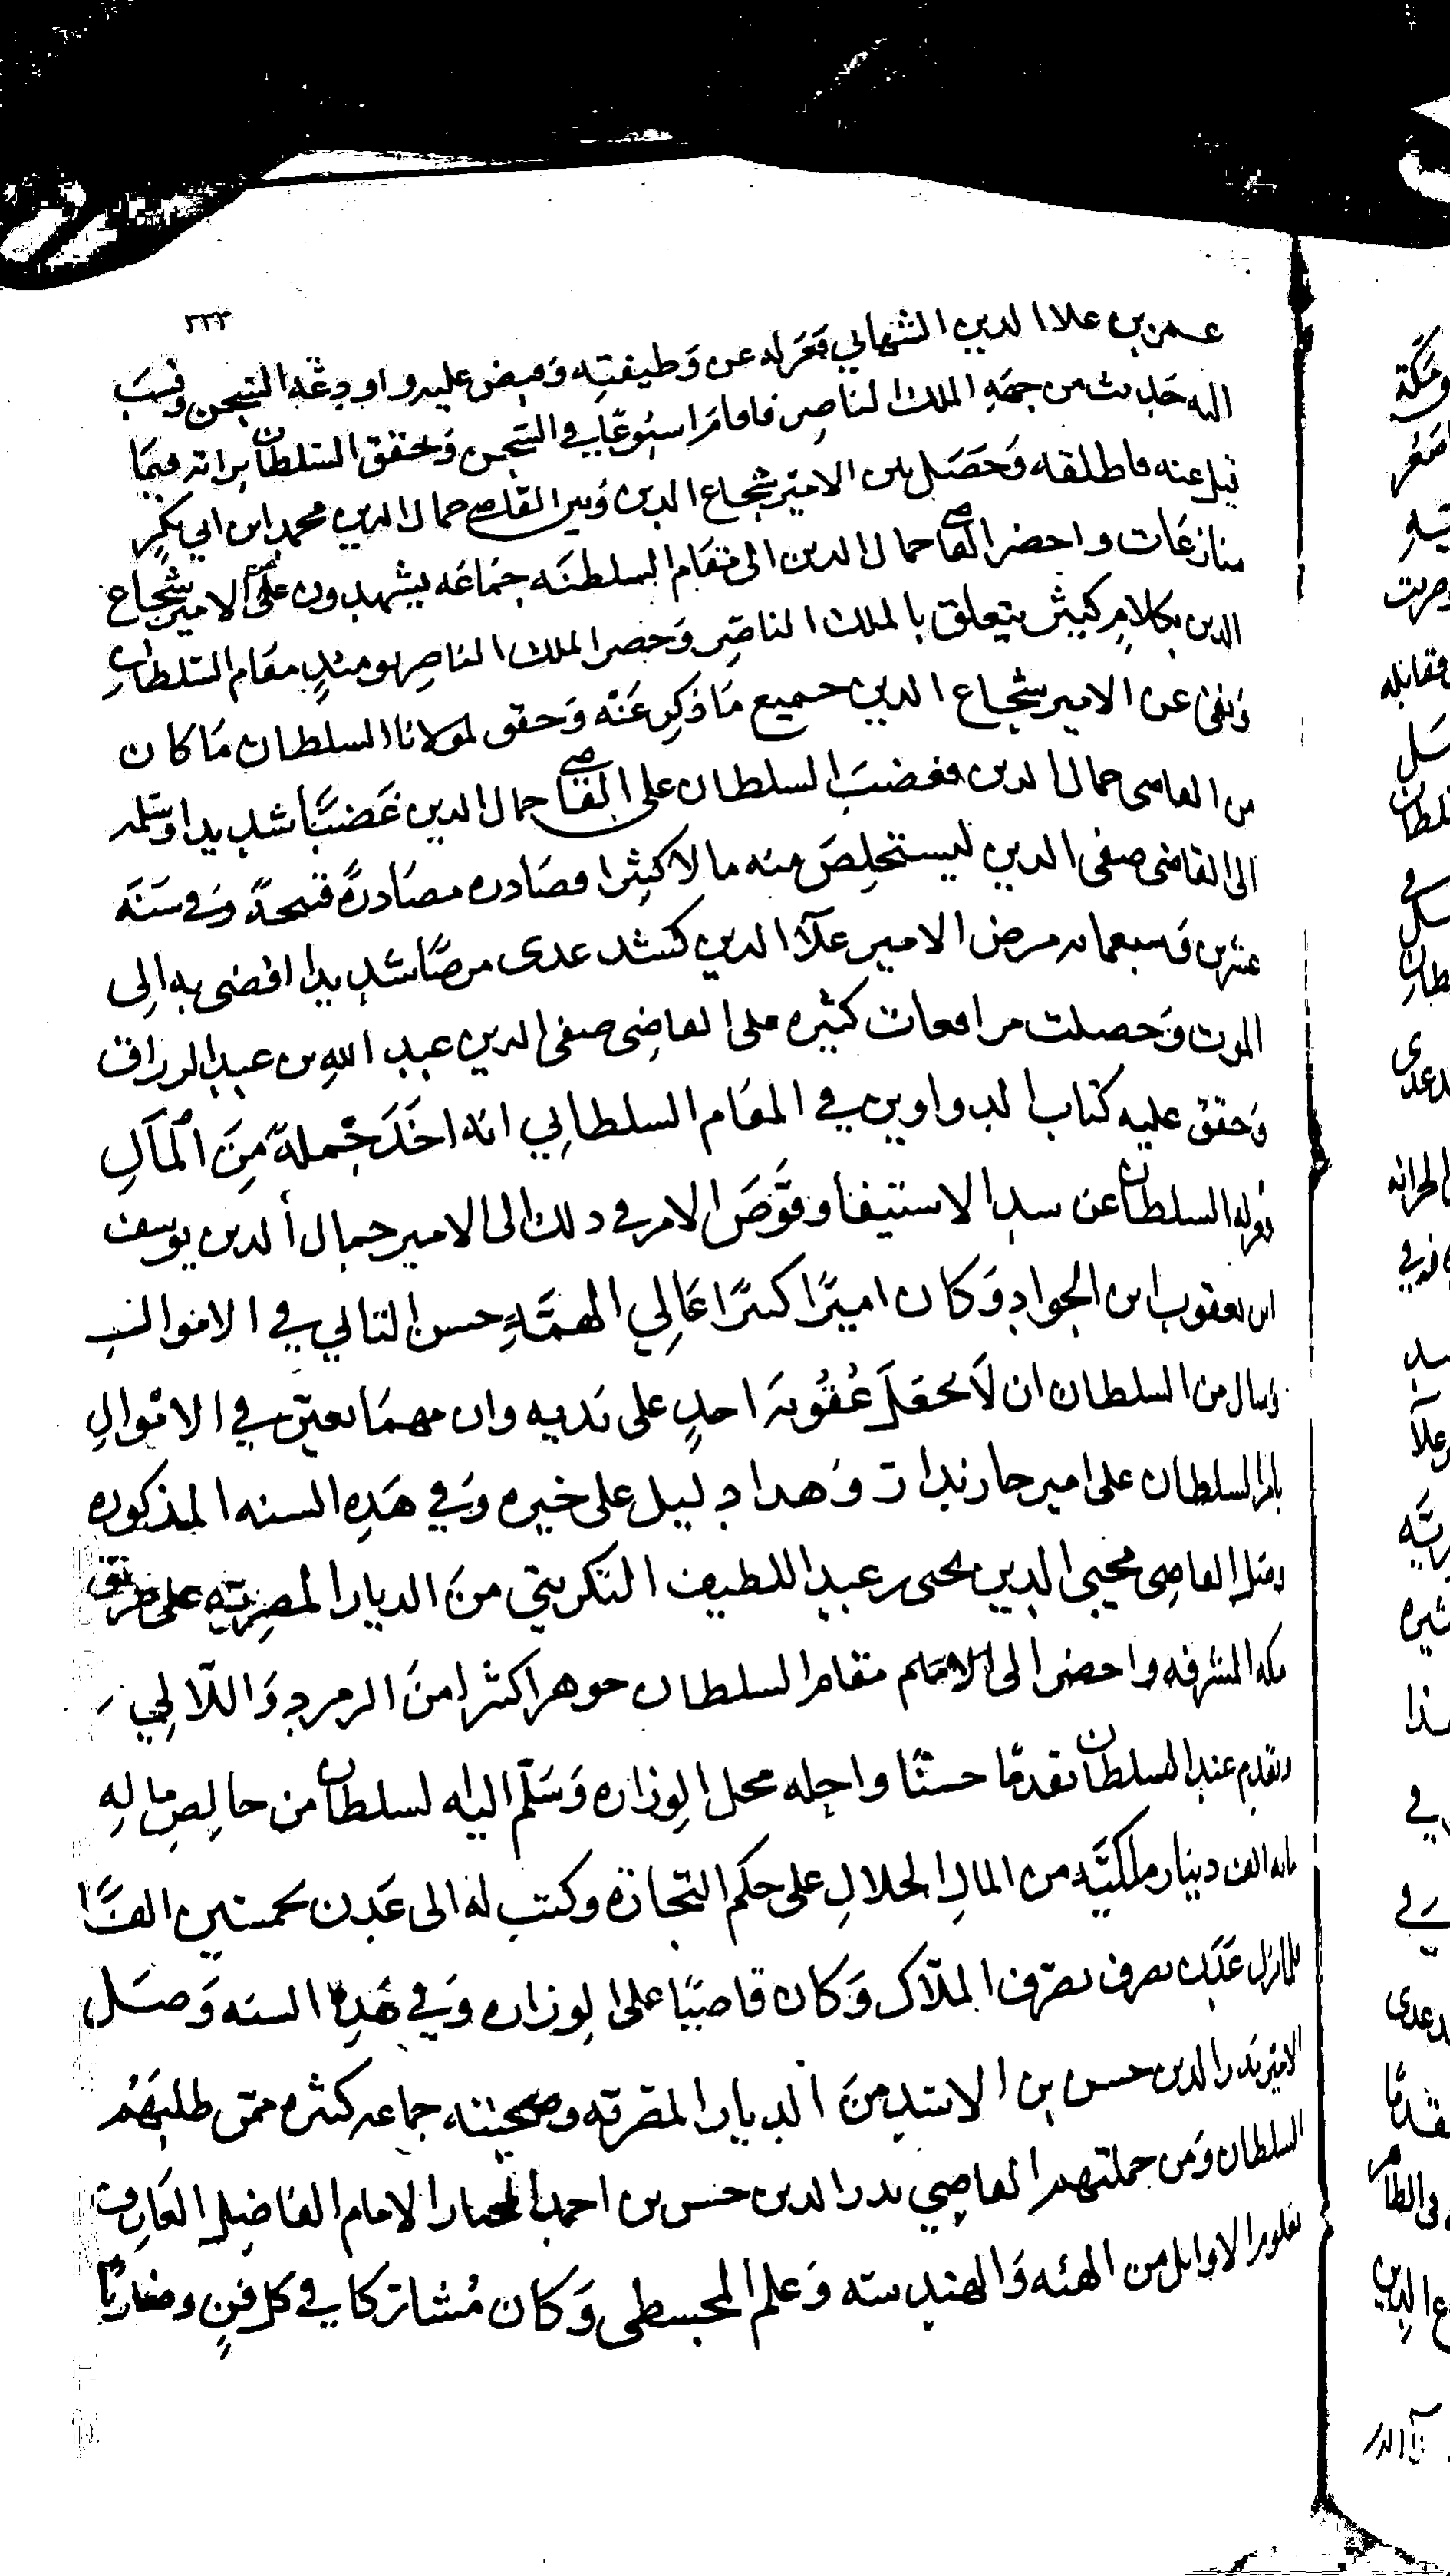 ٣٣٣
عمر بن علا الدين الشهابي فعزله عن وظيفته وقبض عليه واودعه السجن ونسب
اليه حديث من جهة الملك الناصر فاقام اسبوعا في السجن وتحقق السلطان براته فيما
قيل عنه فاطلقه وحصل بين الامير شجاع الدين وبين القاضي جمال الدين محمد ابن ابي بكر
منازعات واحضر القاضي جمال الدين الى مقام السلطنه جماعه يشهدون على الامير شجاع
الدين بكلام كثير يتعلق بالملك الناصر وحضر الملك الناصر يومئذ مقام السلطان
ونفى عن الامير شجاع الدين جميع ما ذكر عنه وحقق لمولانا السلطان ما كان
من القاضي جمال الدين فغضب السلطان على القاضي جمال الدين غضبا شديدا وسلمه
الى القاضي صفي الدين ليستخلص منه مالا كثيرا فصادره مصادرة قبيحة وفي سنة
عشرين وسبعمايه مرض الامير علا الدين كشدغدى مرضا شديدا افضى به الى
الموت وحصلت مرافعات كثيره على القاضي صفي الدين عبد الله بن عبد الرزاق
وحقق عليه كتاب الدواوين في المقام السلطاني انه اخذ جملة من المال
فعزله السلطان عن سد الاستيفا وفوض الامر في ذلك الى الامير جمال الدين يوسف
ابن يعقوب ابن الجواد وكان اميرا كبيرا عالي الهمة حسن التاني في الاموال
وسال من السلطان ان لا يجعل عقوبة احد على يديه وان مهما تعين في الاموال
يامر السلطان على امير جاندار وهذا دليل على خيره وفي هذه السنه المذكوره
وصل القاضي محيي الدين يحيى بن عبد اللطيف التكريتي من الديار المصريه على طريق
مكه المشرفه واحضر الى مقام السلطان جوهرا كثيرا من الزمرد واللآلي
وتقدم عند السلطان تقدما حسنا واحله محل الوزاره وسلم اليه السلطان من خالص ماله
مايه الف دينار ملكية من المال الحلال على حكم التجارة وكتب له الى عدن بخمسين الفا
فلما نزل عدن تصرف تصرف الملاك وكان قاصيا على الوزاره وفي هذه السنه وصل
الامير بدر الدين حسن بن الاسد من الديار المصريه وصحبته جماعه كثيره ممن طلبهم
السلطان ومن جملتهم القاضي بدر الدين حسن بن احمد المختار الامام الفاضل العارف
بعلوم الاوايل من الهيئه والهندسه وعلم المجسطي وكان مشاركا في كل فن وضاربا